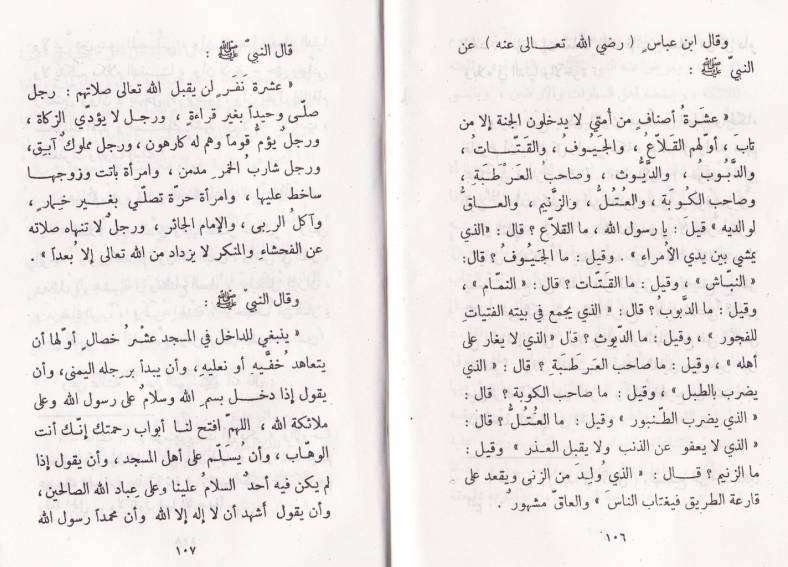 وقال ابن عباسٍ ( رضي الله تعـالى عنه ) عن
النبيّ ﷺ :
« عشَرَةُ أصنافٍ من أمتي لا يدخلون الجنة إلا من
تاب ، أوّلهم القلاّع ، والجَيوف ، والقتّـات ،
والدَّبُوبُ ، والدَّيُّوث ، وصاحبُ العَرْطَبةِ ،
وصاحب الكُوبَة ، والعُتُلُّ ، والزَّنيم ، والعـاقُّ
لوالديه » قيلَ : يا رسول الله ، ما القلاّع ؟ قال : «الذي
يمشي بين يدي الأمراء » . وقيل : ما الجَيُوفُ ؟ قال :
« النبّاش » ، وقيل : ما القَتّات ؟ قال : « النمّام » ،
وقيل : ما الدَّبوبُ ؟ قال : « الذي يجمع في بيته الفتياتِ
للفجور » ، وقيل : ما الدّيوث ؟ قال «الذي لا يغار على
أهله » ، وقيل : ما صاحب العَرطَبَة ؟ قال : « الذي
يضرب بالطبل » ، وقيل : ما صاحب الكوبة ؟ قال :
« الذي يضرب الطّنبور » وقيل : ما العُتُلُّ ؟ قال :
« الذي لا يعفو عن الذنب ولا يقبل العـذر » وقيل :
ما الزنيم ؟ قـــال : « الذي وُلِـدَ من الزنى ويقعد على
قارعة الطريق فيغتاب الناس » والعاقّ مشهورٌ .
١٠٦
قال النبيّ ﷺ :
« عشرة نفرٍ لن يقبل الله تعالى صلاتهم : رجل
صلّى وحيداً بغير قراءةٍ ، ورجل لا يؤدّي الزكاة ،
ورجلٌ يؤمُّ قوماً وهم له كارهون ، ورجل مملوكٌ آبق ،
ورجل شاربُ الخمرِ مدمن ، وامرأة باتت وزوجها
ساخط عليها ، وامرأة حرّة تصلّي بغـير خمارٍ ،
وآكلُ الربى ، والإمام الجائر ، ورجلٌ لا تنهاه صلاته
عن الفحشاءِ والمنكر لا يزداد من الله تعالى إلا بُعداً » .
وقال النبي ﷺ :
« ينبغي للداخل في المسجد عشْرُ خصالٍ أوّلها أن
يتعاهد خُفَّيهِ أو نعليهِ ، وأن يبدأ برِجله اليمنى، وأن
يقول إذا دخـل بسمِ الله وسلامٌ على رسول الله وعلى
ملائكة الله ، اللهمّ افتح لنـا أبواب رحمتك إنّـك أنت
الوهاب ، وأن يسلّـم على أهل المسجد ، وأن يقول إذا
لم يكن فيه أحدٌ السلامُ علينا وعلى عِباد الله الصالحين ،
وأن يقول أشهد أن لا إله إلا الله وأن محمداً رسول الله
١٠٧